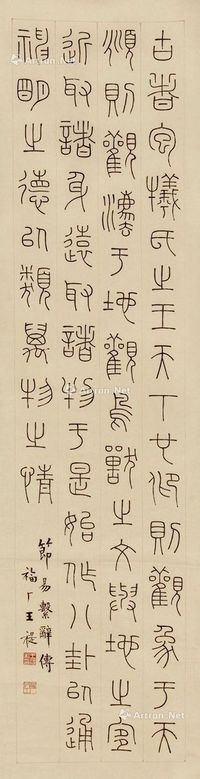 古者宓犧氏之王天下也仰則觀象于天
頫則觀灋于地觀鳥獸之文與地之宜
近取諸身遠取諸物于是始作八卦㠯通
神明之德㠯類萬物之情
節易繫辭傳
福厂王禔
Artron.Net